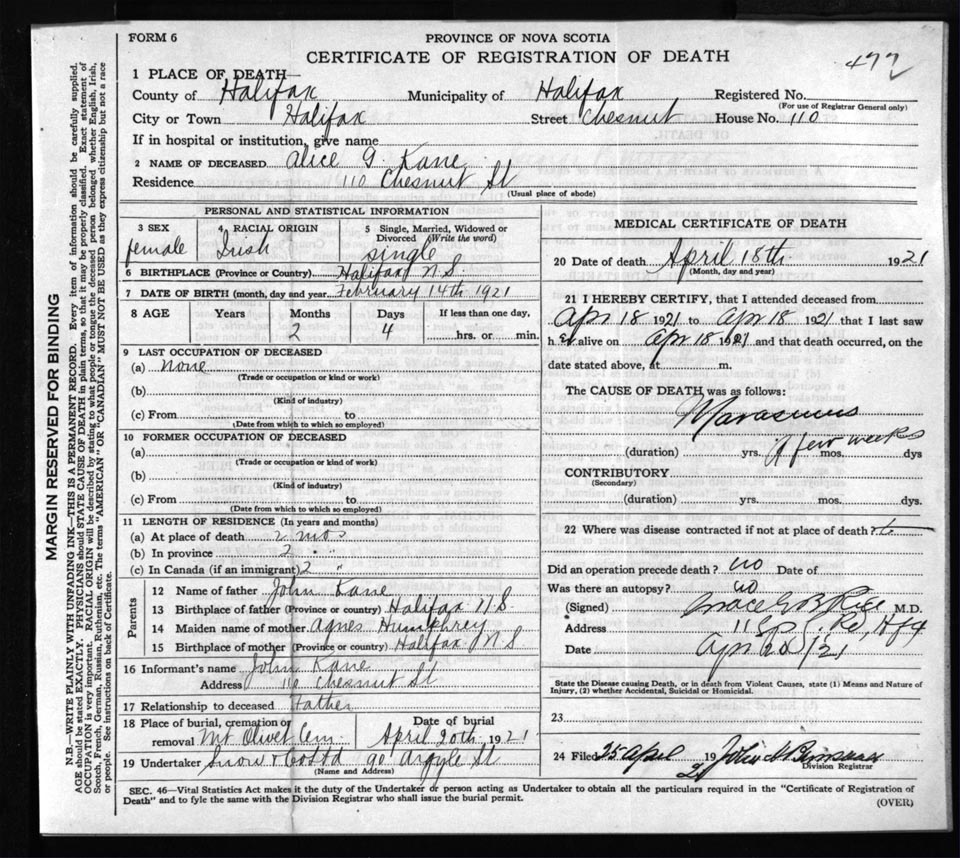 FORM 6
PROVINCE OF NOVA SCOTIA
CERTIFICATE OF REGISTRATION OF DEATH
472
1 PLACE OF DEATH—
County of Halifax Municipality of Halifax Registered No.
(For use of Registrar General only)
City or Town Halifax Street Chesnut House No. 110
If in hospital or institution, give name
2 NAME OF DECEASED Alice G. Kane
Residence 110 Chesnut St
(Usual place of abode)
PERSONAL AND STATISTICAL INFORMATION
3 SEX 4 RACIAL ORIGIN 5 Single, Married, Widowed or Divorced (Write the word)
female Irish single
6 BIRTHPLACE (Province or Country) Halifax N.S.
7 DATE OF BIRTH (month, day and year) February 14th 1921
8 AGE Years Months Days If less than one day,
2 4 hrs. or min.
9 LAST OCCUPATION OF DECEASED
(a) None
(Trade or occupation or kind or work)
(b)
(Kind of industry)
(c) From to
(Date from which to which so employed)
10 FORMER OCCUPATION OF DECEASED
(a)
(Trade or occupation or kind or work)
(b)
(Kind of industry)
(c) From to
(Date from which to which so employed)
11 LENGTH OF RESIDENCE (In years and months)
(a) At place of death 2 mos
(b) In province 2 "
(c) In Canada (if an immigrant) 2 "
Parents
12 Name of father John Kane
13 Birthplace of father (Province or country) Halifax N.S.
14 Maiden name of mother Agnes Humphrey
15 Birthplace of mother (Province or country) Halifax N S
16 Informant's name John Kane
Address 110 Chesnut St
17 Relationship to deceased Father
18 Place of burial, cremation or removal Mt Olivet Cem. Date of burial April 20th 1921
19 Undertaker Snow & Co Ltd 90 Argyle St
(Name and Address)
MEDICAL CERTIFICATE OF DEATH
20 Date of death April 18th 1921
(Month, day and year)
21 I HEREBY CERTIFY, that I attended deceased from
Apr 18 1921 to Apr 18 1921 that I last saw
h er alive on Apr 18 1921 and that death occurred, on the
date stated above, at m.
The CAUSE OF DEATH was as follows:
Marasmus
(duration) yrs. A few weeks mos. dys
CONTRIBUTORY
(Secondary)
(duration) yrs. mos. dys.
22 Where was disease contracted if not at place of death?
Did an operation precede death? no Date of
Was there an autopsy? no
(Signed) Grace E B Rice M.D.
Address
Date Apr 20/21
State the Disease causing Death, or in death from Violent Causes, state (1) Means and Nature of
Injury, (2) whether Accidental, Suicidal or Homicidal.
23
24 Filed 25 April 1921 John
Division Registrar
SEC. 46—Vital Statistics Act makes it the duty of the Undertaker or person acting as Undertaker to obtain all the particulars required in the "Certificate of Registration of
Death" and to fyle the same with the Division Registrar who shall issue the burial permit.
(OVER)
MARGIN RESERVED FOR BINDING
N.B.—WRITE PLAINLY WITH UNFADING INK—THIS IS A PERMANENT RECORD. Every item of information should be carefully supplied.
AGE should be stated EXACTLY. PHYSICIANS should STATE CAUSE OF DEATH in plain terms, so that it may be properly classified. Exact statement of
OCCUPATION is very important. RACIAL ORIGIN will be described by stating to what people or tongue the deceased person belonged whether English, Irish,
Scotch, French, German, Russian, Ruthenian, etc. The terms "AMERICAN" OR "CANADIAN" MUST NOT BE USED as they express citizenship but not a race
or people. See instructions on back of Certificate.